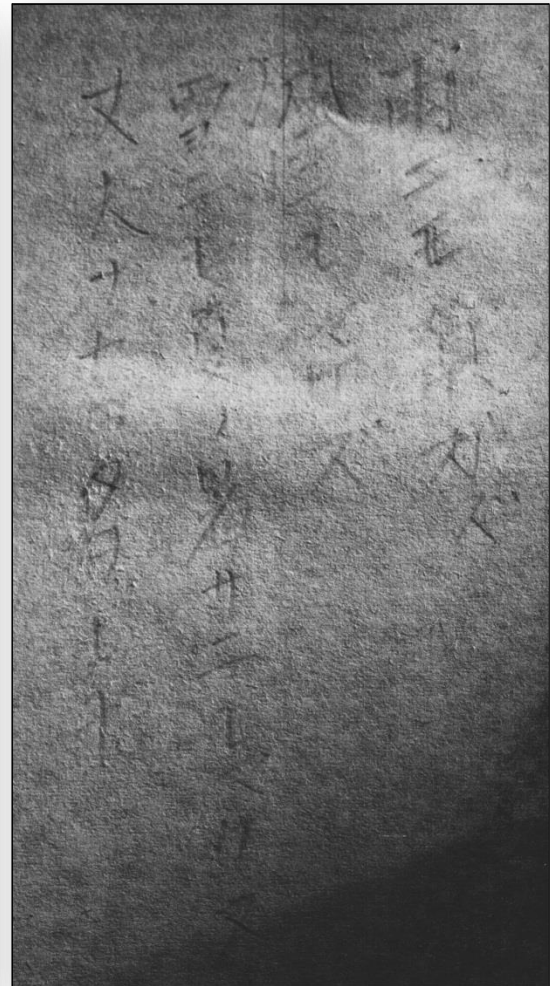 雨ニモマケズ
風ニモマケズ
雪ニモ夏ノ暑サニモマケヌ
丈夫ナカラダヲモチ